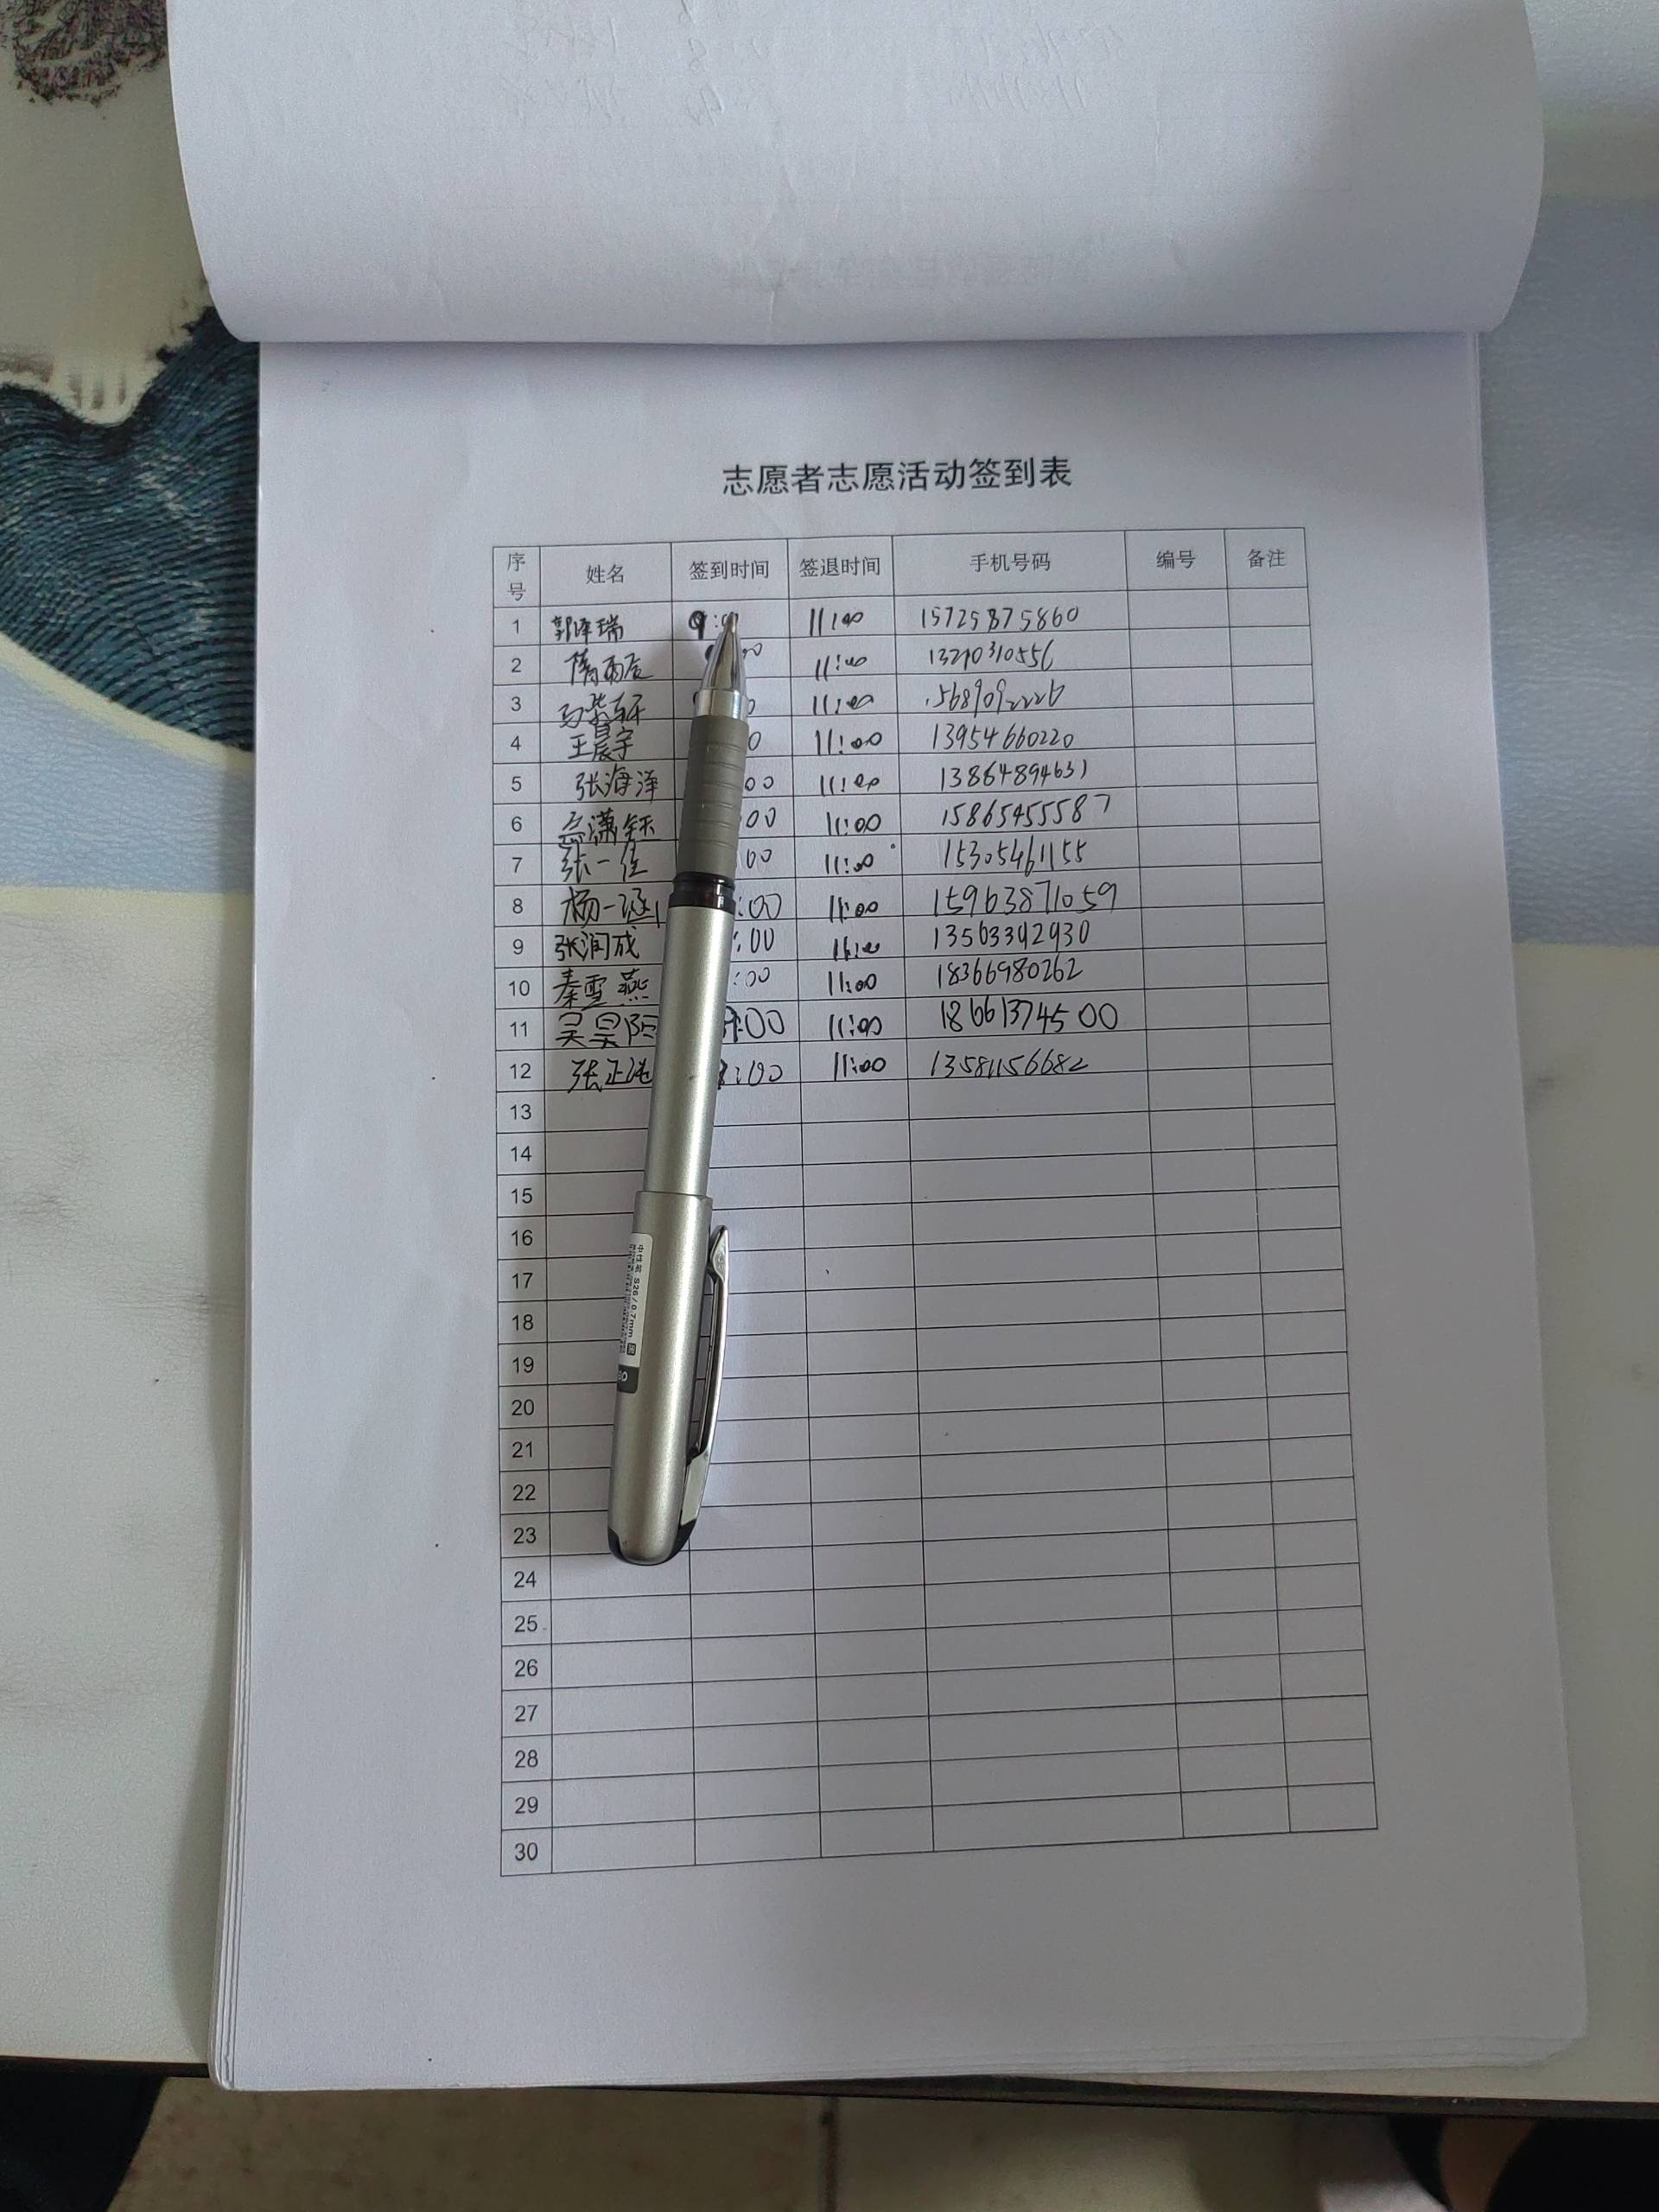 志愿者志愿活动签到表
序号 姓名 签到时间 签退时间 手机号码 编号 备注
1 郭泽瑞 9:0 11:00 15725875860
2 隋雨辰 00 11:00 1321031055
3 马紫轩 0 11:00 568909222
4 王晨宇 0 11:00 13954660220
5 张海泽 00 11:00 13864894631
6 潇钰 :00 11:00 15865455587
7 张一 00 11:00 15305461155
8 杨一涵 :00 11:00 15963871059
9 张润成 :00 11:00 13563392930
10 秦雪燕 :00 11:00 18366980262
11 吴昊阳 9:00 11:00 18661374500
12 张正 :00 11:00 13581156682
13
14
15
16
17
18
19
20
21
22
23
24
25
26
27
28
29
30
中性笔 S26/0.7mm 黑